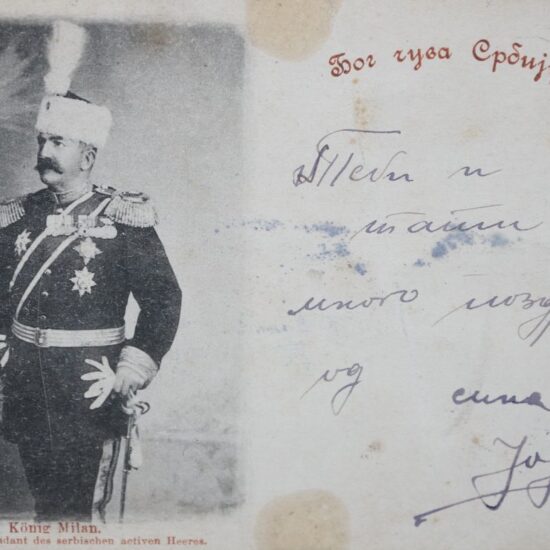 Бог чува Србиј
Теби и
тати
много позд
од сина
Јо
König Milan.
ndant des serbischen activen Heeres.